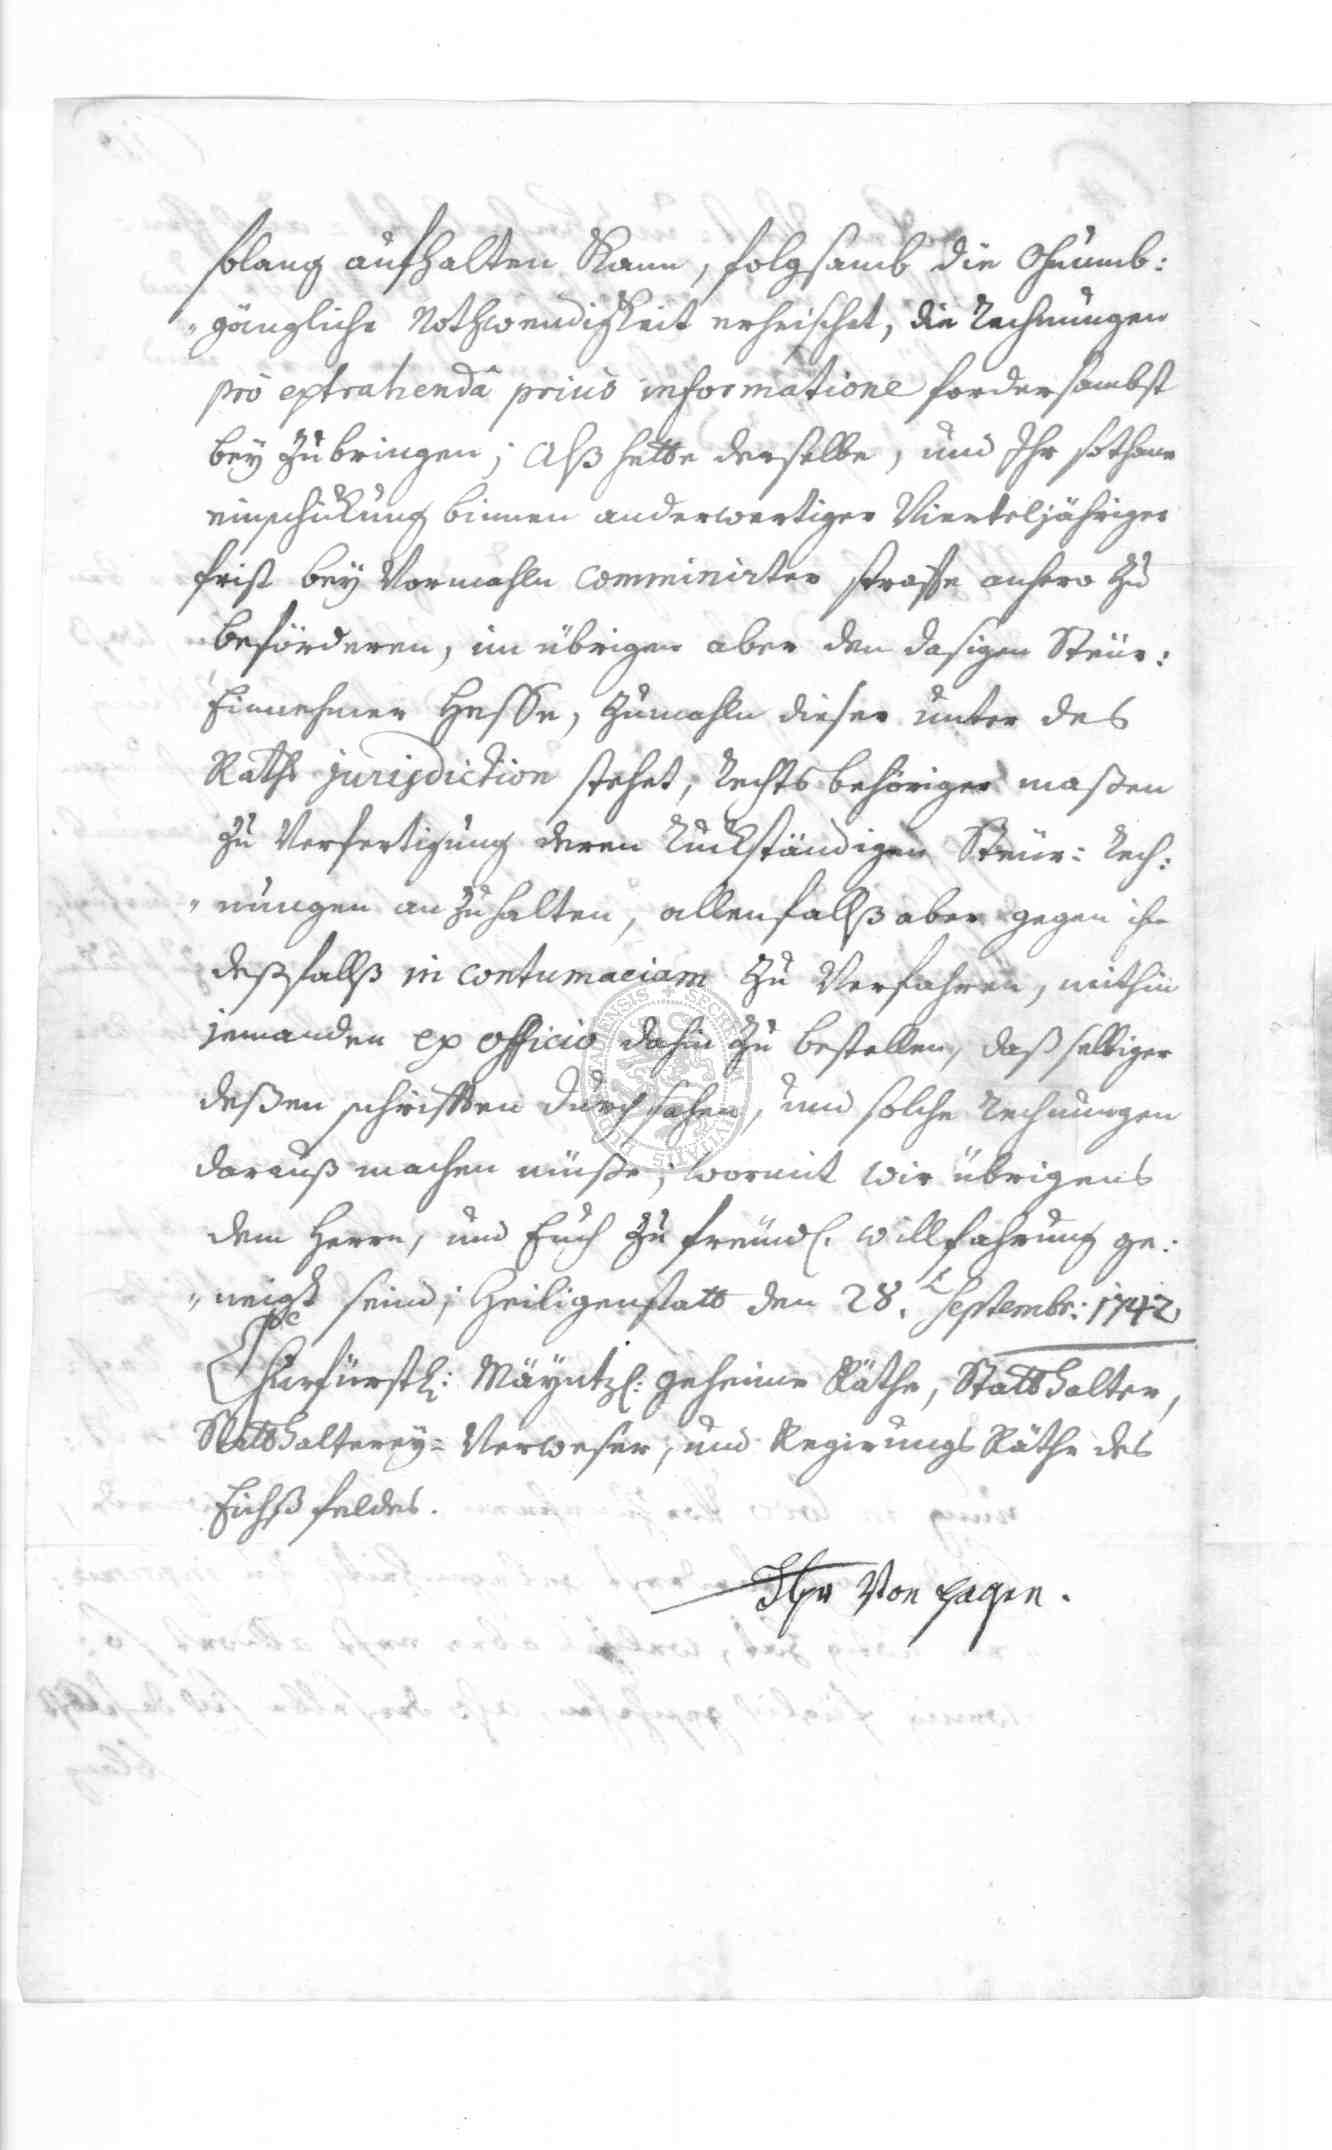 solang aufhalten kann, folgsamb die Ohnumb:
"gängliche Nothwendigkeit erheischet, die Rechnungen
pro extrahendâ prius informatione fordersambst
bey zu bringen; Alß hette derselbe, und Ihr sothane
einschickung binnen anderwertiger Vierteljähriger
frist bey Vormahln comminirter straffe anhero zu
beförderen, im übrigen aber den dasigen Steür:
Einnehmer Hesse, zumahln dieser unter des
Raths jurisdiction stehet, Rechts behöriger maßen
zu Verfertigung deren Rückständigen Steür: Rech:
"nungen anzuhalten, allenfallß aber gegen ihn
deßfallß in contumaciam zu Verfahren, mithin
jemanden ex officio dahin zu bestellen, daß selbiger
deßen schrifften durchsehen, und solche Rechnungen
darauß machen müße; wormit wir übrigens
dem Herrn, und Euch zu freündl. willfahrung ge:
"neigt seind; Heiligenstatt den 28. t Septembr: 1742
Churfürstl: Mäyntzl: geheime Räthe, Statthalter,
Statthalterey-Verweser, und Regirungs Räthe des
Eichßfeldes.
Von Hagen.
SECRETUM CIVITATIS